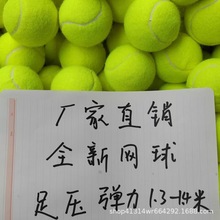 厂家直销
全新网球
足压 弹力1.3-14米
shop41314wf664292.1688.com